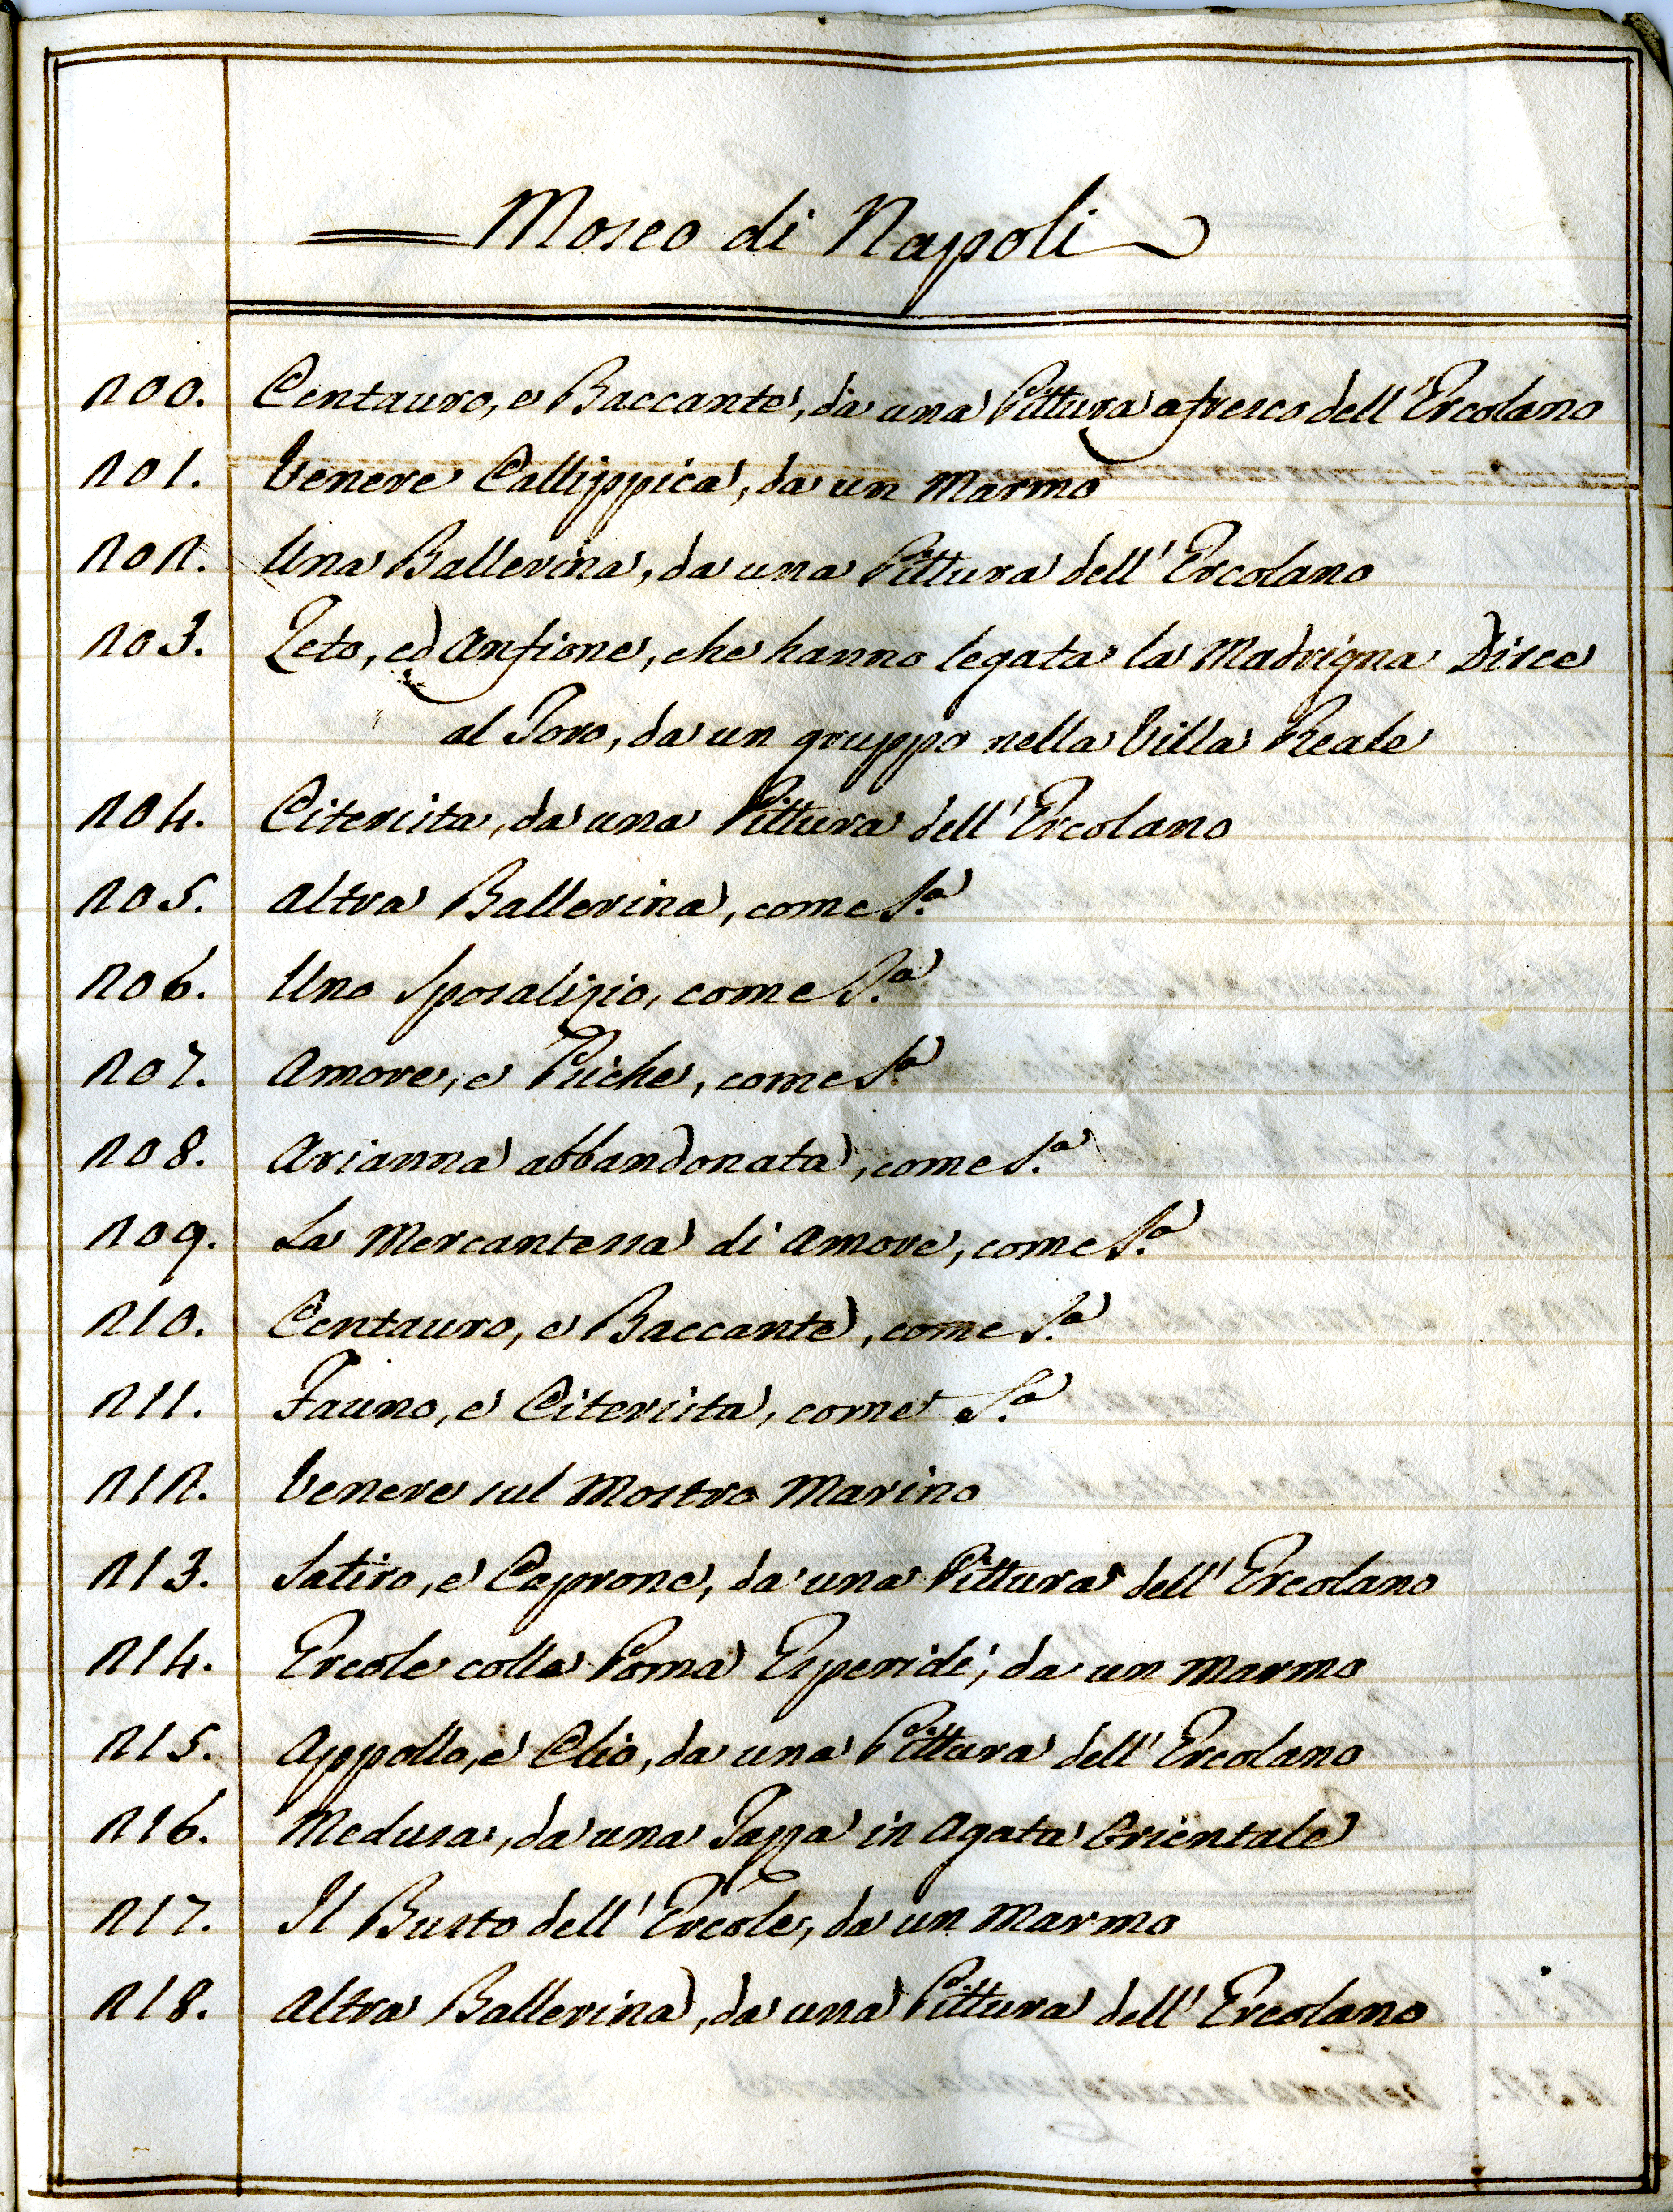 Moseo di Napoli
200. Centauro, e Baccante, da una Pittura a fresco dell'Ercolano
201. Venere Callippica, da un Marmo
202. Una Ballerina, da una Pittura dell'Ercolano
203. Zeto, ed Anfione, che hanno legata la Madrigna Dirce
al Toro, da un gruppo nella Villa Reale
204. Citerista, da una Pittura dell'Ercolano
205. Altra Ballerina, come S.a
206. Uno Sposalizio, come S.a
207. Amore, e Psiche, come S.a
208. Arianna abbandonata, come S.a
209. La Mercantessa di Amore, come S.a
210. Centauro, e Baccante, come S.a
211. Fauno, e Citerista, come S.a
212. Venere sul Mostro Marino
213. Satiro, e Caprone, da una Pittura dell'Ercolano
214. Ercole colle Poma Esperidi, da un Marmo
215. Appollo, e Clio, da una Pittura dell'Ercolano
216. Medusa, da una Tazza in Agata Orientale
217. Il Busto dell'Ercole, da un Marmo
218. Altra Ballerina, da una Pittura dell'Ercolano